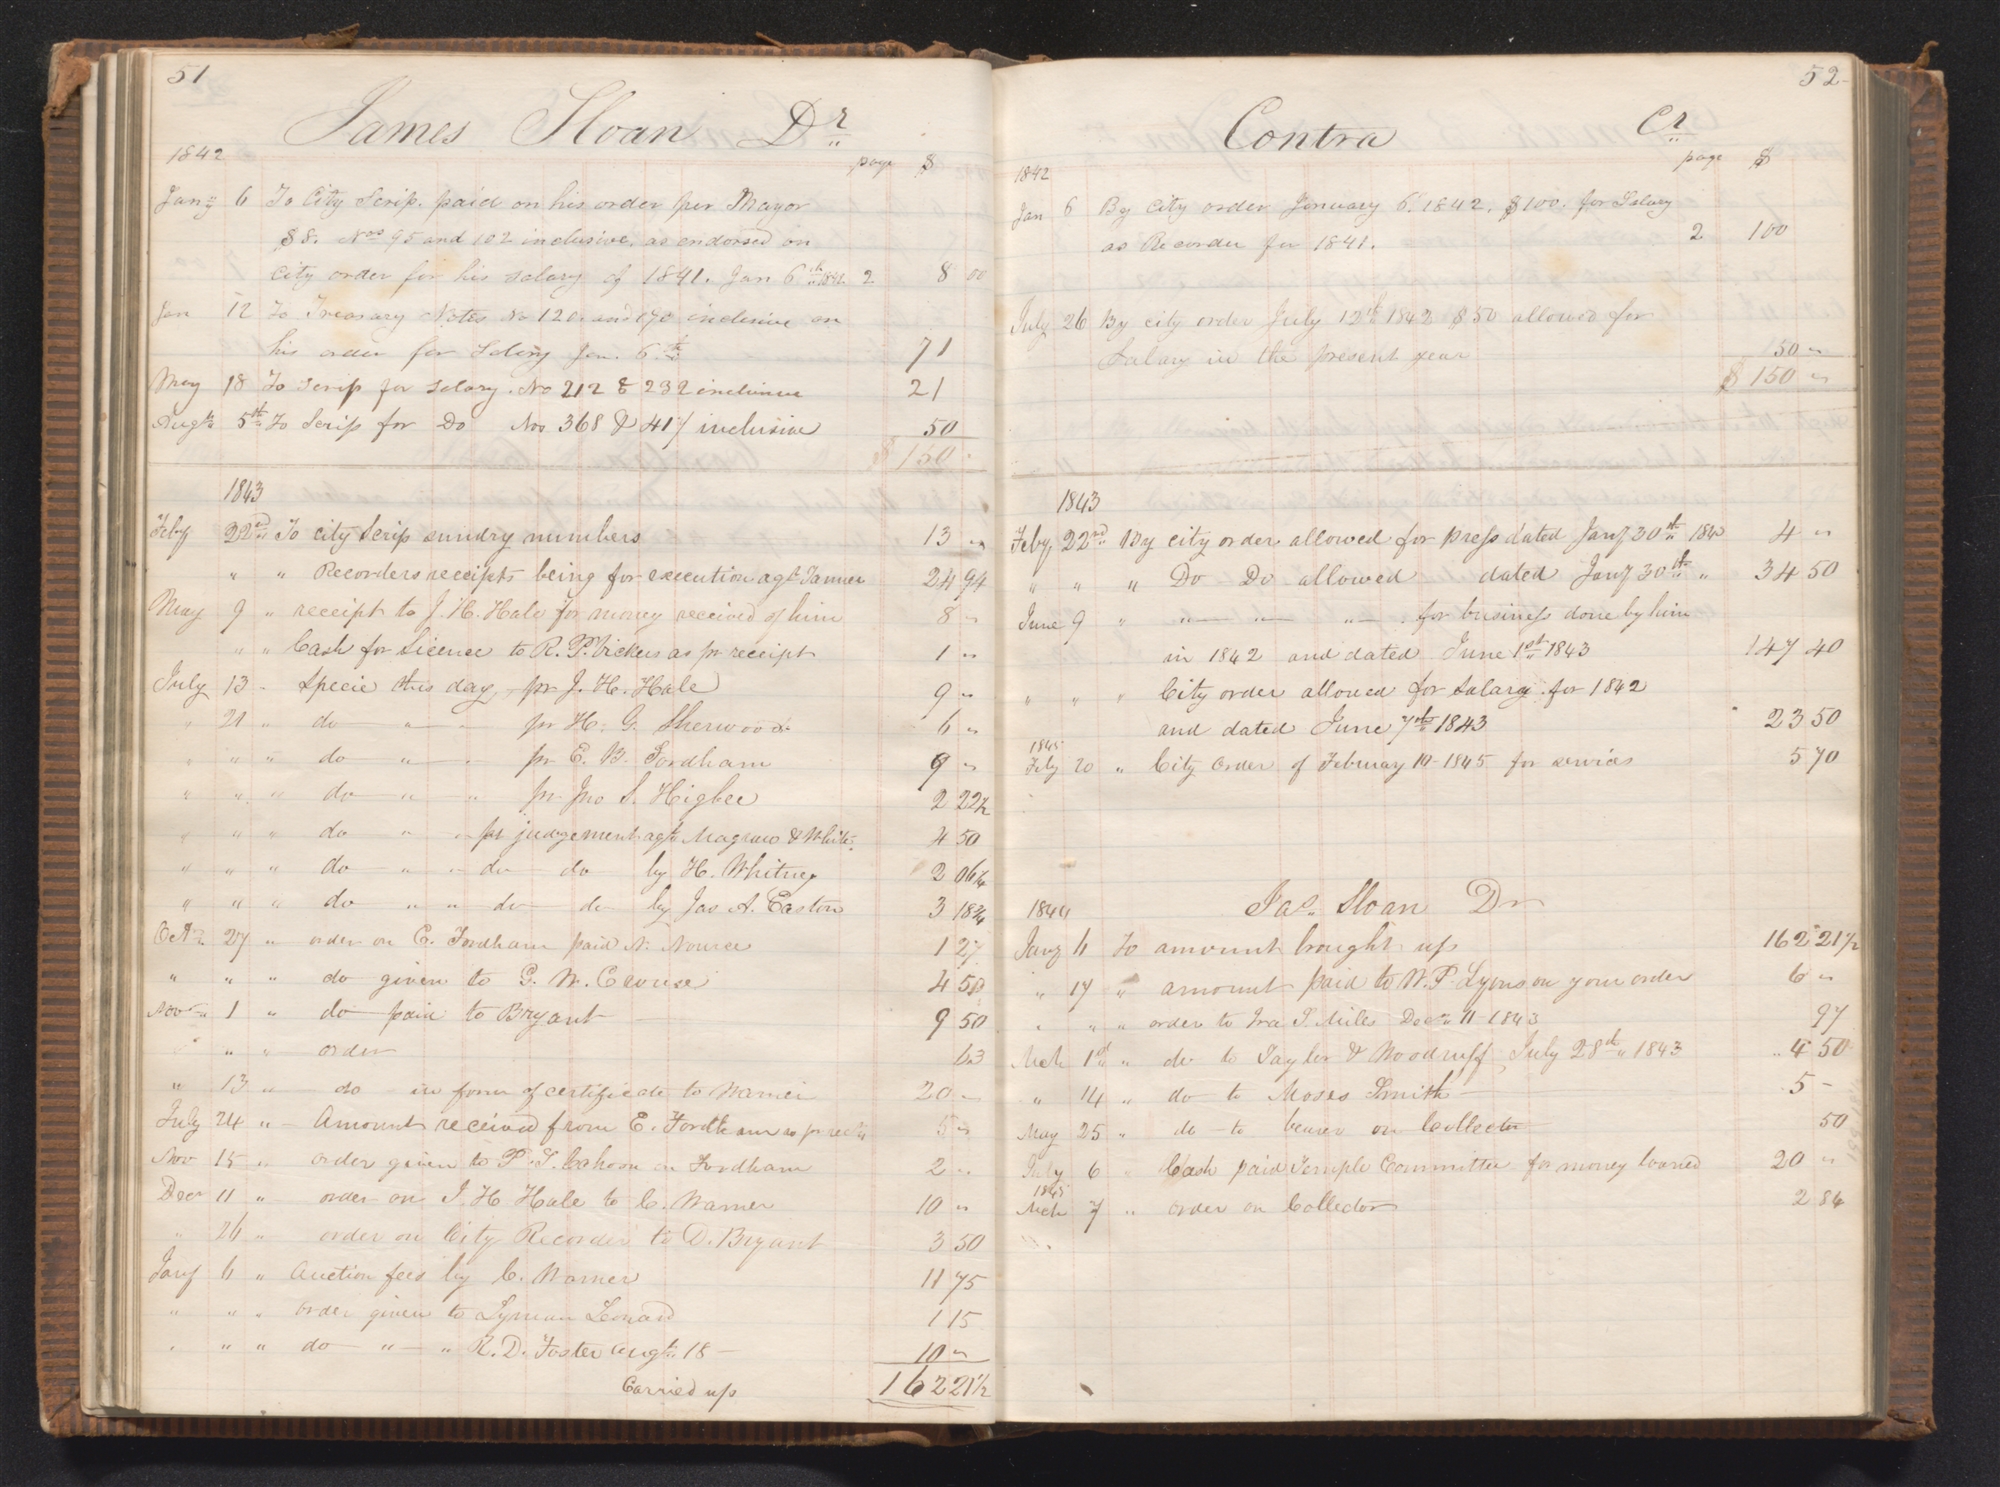 51
James Sloan Dr
1842 page $
Jany 6 To City Scrip. paid on his order per Mayor
$8. Nos 95 and 102 inclusive, as endorsed on
city order for his salary of 1841. Jan 6th 1842 2 8 00
Jan 12 To Treasury Notes No 120. and 190 inclusive on
his order for Salary Jan. 6th 71
May 18 To Scrip for Salary. No 212 & 232 inclusive 21
Augt 5th To Scrip for Do Nos 368 & 417 inclusive 50
$ 150
1843
Feby 22nd To city Scrip sundry numbers 13 "
" " Recorders receipts being for execution agt Tanner 24 94
May 9 " receipt to J. H. Hale for money received of him 8 "
" " Cash for Licence to R. P. Vickers as pr receipt 1 "
July 13 " Specie this day, pr J. H. Hale 9 "
" 21 " do " " pr H. G. Sherwood 6 "
" " " do " " pr E. B. Fordham 9 "
" " " do " " pr Jno S. Higbee 2 22½
" " " do " " pr judgement agt Magraw & White 4 50
" " " do " " do do by H. Whitney 2 06¼
" " " do " " do do by Jas A. Easton 3 18¾
Octr 27 " order on E. Fordham paid N. Nource 1 27
" " " do given to G. W. Crouse 4 50
Nov 1 " do paid to Bryant 9 50
" " " order 63
" 13 " do in form of certificate to Warner 20 "
July 24 " Amount received from E. Fordham as pr rect 5 "
Nov 15 " order given to P. S. Cahoon on Fordham 2 "
Decr 11 " order on J. H Hale to C. Warner 10 "
" 26 " order on City Recorder to D. Bryant 3 50
Jany 6 " Auction fees by C. Warner 11 75
" " " order given to Lyman Leonard 1 15
" " " do " " R. D. Foster Augt 18 10 "
Carried up 162 21½
52
Contra Cr
1842 page $
Jan 6 By City order January 6. 1842. $100. for Salary
as Recorder for 1841. 2 100
July 26 By city order July 12th 1842 $50 allowed for
Salary in the present year 50 "
$ 150 "
1843
Feby 22nd By city order allowed for press dated Jany 30th 1843 4 "
" " " Do Do allowed dated Jany 30th " 34 50
June 9 " " " " for business done by him
in 1842 and dated June 1st 1843 147 40
" " " City order allowed for Salary for 1842
and dated June 7th 1843 23 50
1845
Feby 20 " City Order of February 10 - 1845 for services 5 70
Jas. Sloan Dr
1844
Jany 6 To amount brought up 162 21½
" 17 " amount paid to W. P. Lyons on your order 6 "
" " " order to Ira S. Miles Decr 11 - 1843 97
Mch 1st " do to Taylor & Woodruff, July 28th 1843 4 50
" 14 " do to Moses Smith 5 -
May 25 " do to bearer on Collector 50
July 6 " Cash paid Temple Committee for money loaned 20 "
1845
Mch 7 " order on Collector 2 84